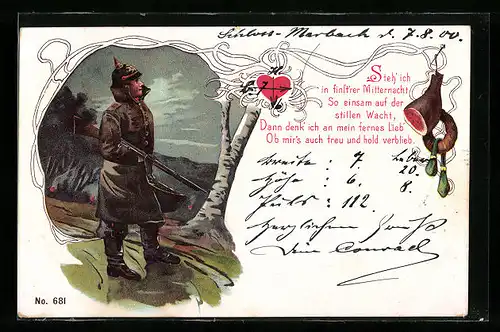 Schloss-Marbach d. 7.8.00.
Steh' ich
in finst'rer Mitternacht
So einsam auf der
stillen Wacht,
Dann denk ich an mein fernes Lieb
Ob mir's auch treu und hold verblieb.
Breite : 7. Leber
Höhe : 6. 20.
Puls : 112 8.
Herzlichen Gruß
Dein Conrad
No. 681